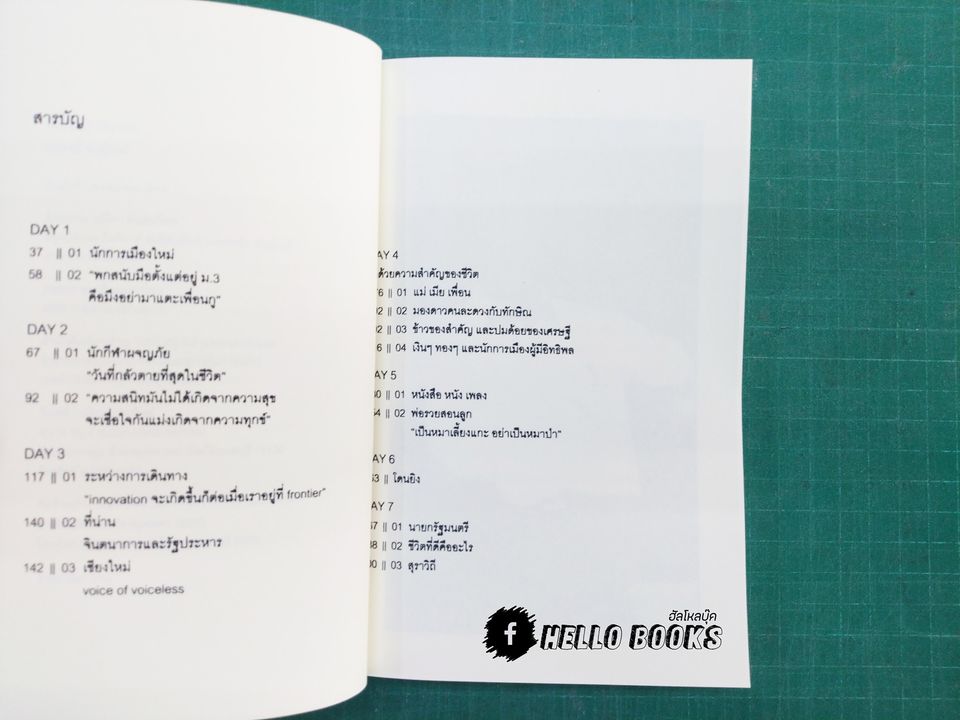 สารบัญ
DAY 1
37 || 01 นักการเมืองใหม่
58 || 02 "พกสนับมือตั้งแต่อยู่ ม.3
คือมึงอย่ามาแตะเพื่อนกู"
DAY 2
67 || 01 นักกีฬาผจญภัย
"วันที่กลัวตายที่สุดในชีวิต"
92 || 02 "ความสนิทมันไม่ได้เกิดจากความสุข
จะเชื่อใจกันแม่งเกิดจากความทุกข์"
DAY 3
117 || 01 ระหว่างการเดินทาง
"innovation จะเกิดขึ้นก็ต่อเมื่อเราอยู่ที่ frontier"
140 || 02 ที่น่าน
จินตนาการและรัฐประหาร
142 || 03 เชียงใหม่
voice of voiceless
AY 4
ด้วยความสำคัญของชีวิต
|| 01 แม่ เมีย เพื่อน
|| 02 มองดาวคนละดวงกับทักษิณ
|| 03 ข้าวของสำคัญ และปมด้อยของเศรษฐี
|| 04 เงินๆ ทองๆ และนักการเมืองผู้มีอิทธิพล
AY 5
|| 01 หนังสือ หนัง เพลง
|| 02 พ่อรวยสอนลูก
"เป็นหมาเลี้ยงแกะ อย่าเป็นหมาป่า"
AY 6
|| โดนยิง
AY 7
|| 01 นายกรัฐมนตรี
|| 02 ชีวิตที่ดีคืออะไร
|| 03 สุราวิถี
ฮัลโหลบุ๊ค
f HELLO BOOKS